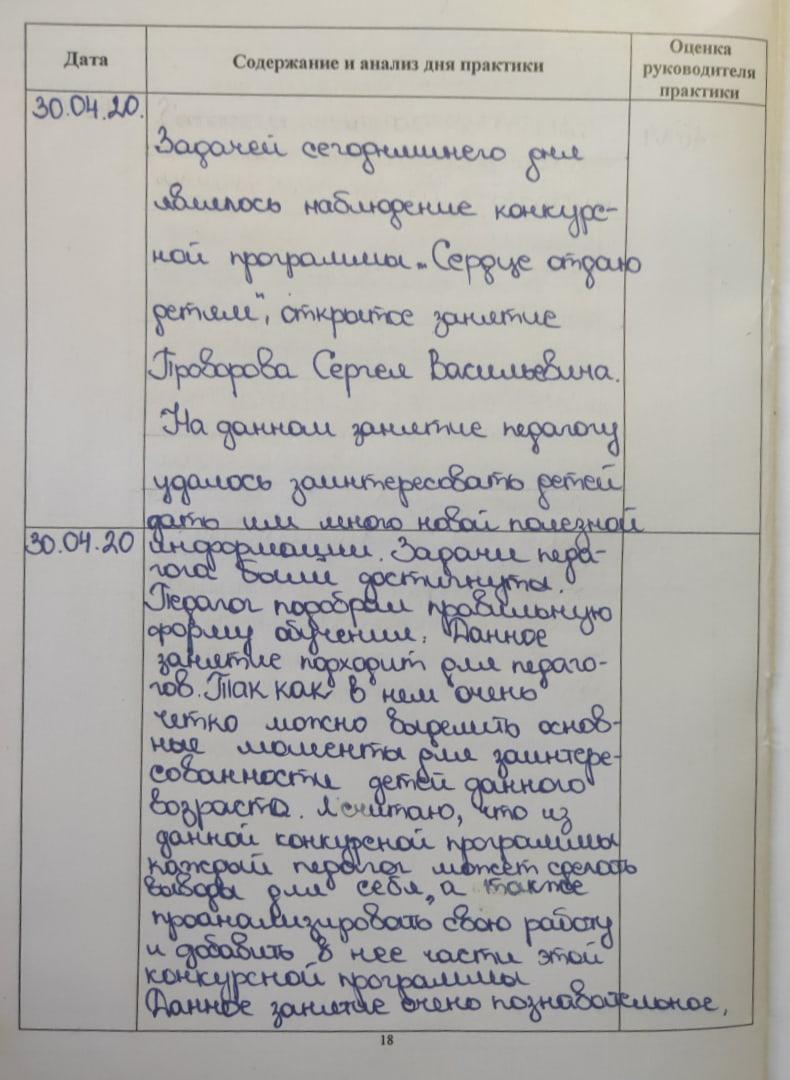 Дата
Содержание и анализ дня практики
Оценка
руководителя
практики
30.04.20.
Задачей сегодняшнего дня
являлось наблюдение конкурс-
ной программы „Сердце отдаю
детям", открытое занятие
Проворова Сергея Васильевича.
На данном занятие педагогу
удалось заинтересовать детей
дать им много новой полезной
30.04.20
информации. Задачи педа-
гога были достигнуты.
Педагог подобрал правильную
форму обучения. Данное
занятие подходит для педаго-
гов. Так как в нем очень
четко можно выделить основ-
ные моменты для заинтере-
сованности детей данного
возраста. Я считаю, что из
данной конкурсной программы
каждый педагог может сделать
выводы для себя, а также
проанализировать свою работу
и добавить в нее части этой
конкурсной программы
Данное занятие очень познавательное,
18